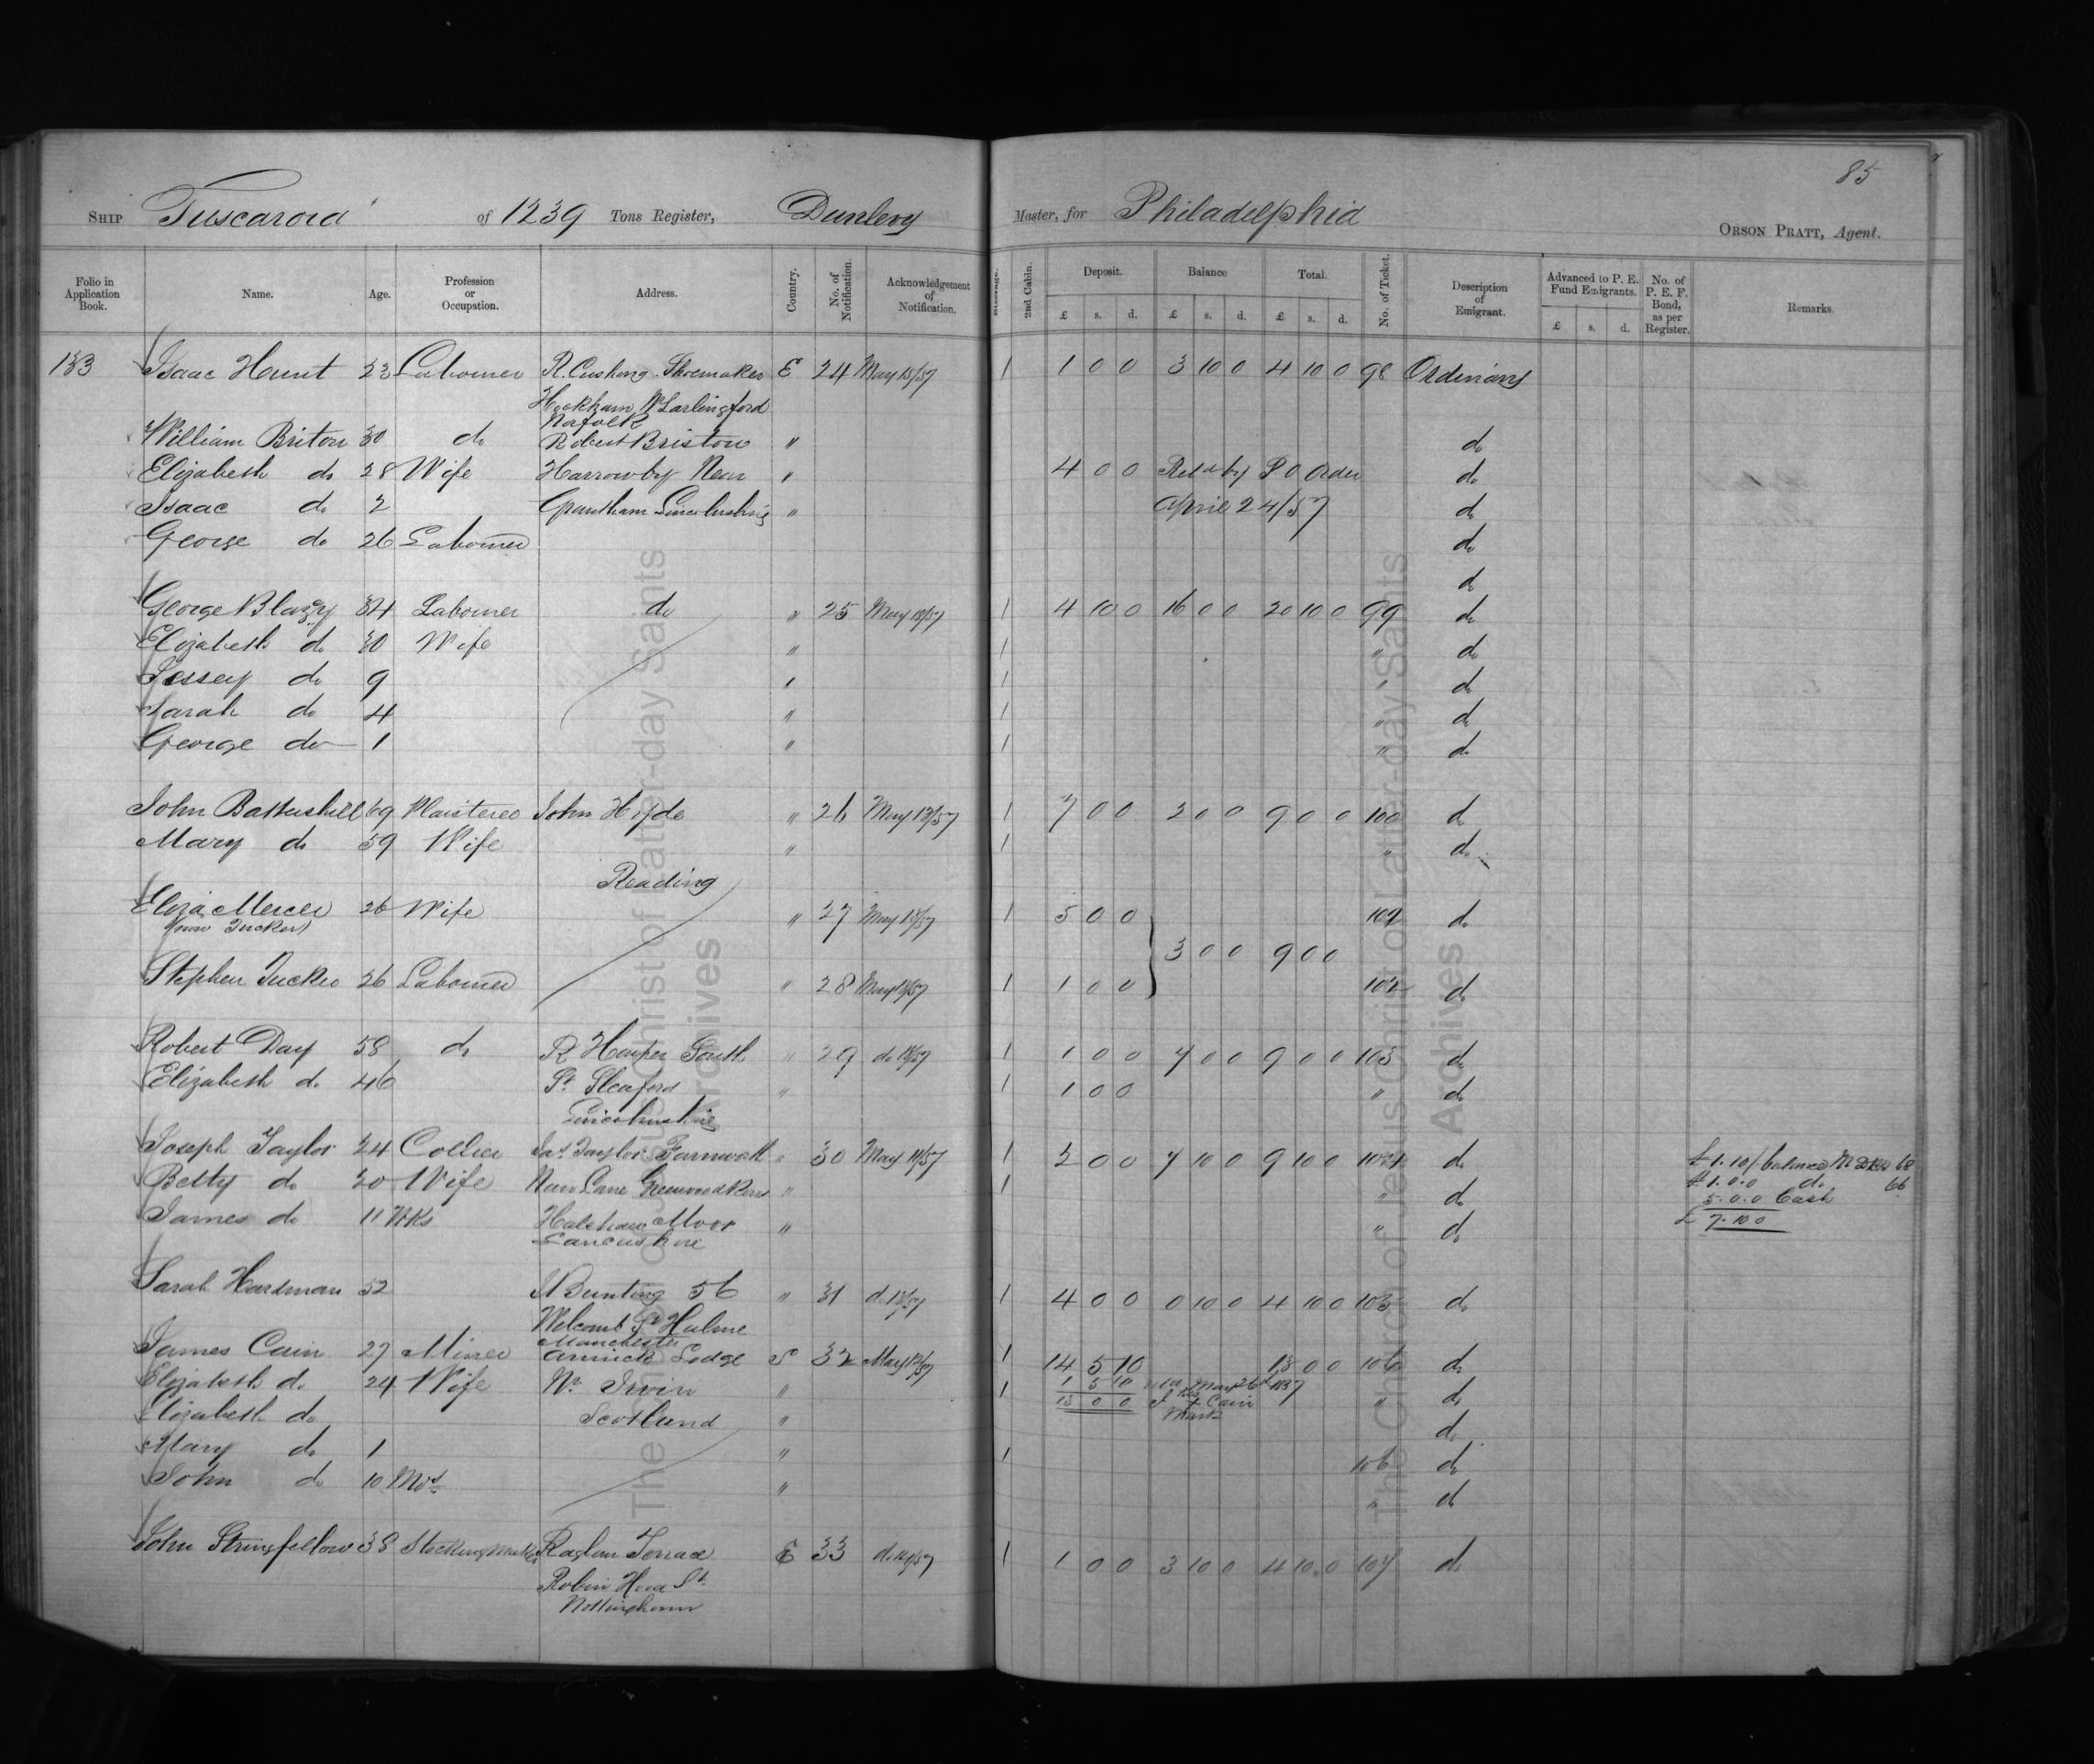 85
Ship Tuscarora of 1239 Tons Register, Dunlevy Master, for Philadelphia
Orson Pratt, Agent.
Folio in Application Book. Name. Age. Profession or Occupation. Address. Country. No. of Notification. Acknowledgement of Notification. Steerage. 2nd Cabin. Deposit. Balance Total. No. of Ticket. Description of Emigrant. Advanced to P. E. Fund Emigrants. No. of P. E. F. Bond, as per Register. Remarks.
£ s. d. £ s. d. £ s. d. £ s. d.
133 Isaac Hunt 23 Labourer R. Cushing Shoemaker E 24 May 13/57 1 1 0 0 3 10 0 4 10 0 98 Ordinary
Hockham Nr Larlingford
Norfolk
William Briton 30 do Robert Bristow " do
Elizabeth do 28 Wife Harrowby Near " 4 0 0 Retd by P O Order do
Isaac do 2 Grantham Lincolnshire " April 24/57 do
George do 26 Labourer do
do
George Blazey 34 Labourer do " 25 May 13/57 1 4 10 0 16 0 0 20 10 0 99 do
Elizabeth do 30 Wife " 1 " do
do 9 " 1 " do
Sarah do 4 " 1 " do
George do 1 " 1 " do
John Battershill 69 Plaisterer John Hyde " 26 May 13/57 1 7 0 0 2 0 0 9 0 0 100 do
Mary do 59 Wife " 1 " do
Reading
Eliza Mercer 26 Wife " 27 May 13/57 1 5 0 0 102 do
(now Tucker)
3 0 0 9 0 0
Stephen Tucker 26 Labourer " 28 May 13/57 1 1 0 0 102 do
Robert Day 58 do R Harper South " 29 do 13/57 1 1 0 0 7 0 0 9 0 0 103 do
Elizabeth do 46 St Sleaford " 1 1 0 0 " do
Lincolnshire
Joseph Taylor 24 Collier Jas Taylor Farnworth " 30 May 14/57 1 2 0 0 7 10 0 9 10 0 104 do £1.10/ balance 68
Betty do 20 Wife New Lane Greenwood Row " 1 " do £1.0.0 do 66
5.0.0 Cash
James do 11 Wks Halshaw Moor " " do £7.10.0
Lancashire
Sarah Hardman 52 Bunting 56 " 31 do 13/57 1 4 0 0 0 10 0 4 10 0 105 do
Welcomb St Hulme
Manchester
James Cain 27 Miner Annick Lodge S 32 May 13/57 1 14 5 10 15 0 0 106 do
Elizabeth do 24 Wife Nr Irvin " 1 May 26th 1857 " do
Elizabeth do Scotland " 15 0 0 J his X Cain do
mark
Mary do 1 " 1 106 do
John do 10 Mos " " do
John Stringfellow 38 Stocking Maker Raglan Terrace E 33 do 14/57 1 1 0 0 3 10 0 4 10 0 107 do
Robin Hood St
Nottingham
The Church of Jesus Christ of Latter-day Saints
Archives
The Church of Jesus Christ of Latter-day Saints
Archives